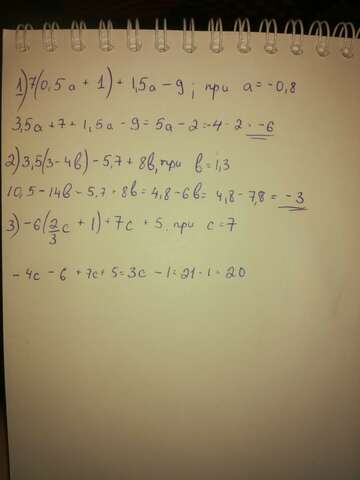 1) 7(0,5a + 1) + 1,5a - 9; при a = -0,8
3,5a + 7 + 1,5a - 9 = 5a - 2 = -4 - 2 = -6
2) 3,5(3 - 4b) - 5,7 + 8b, при b = 1,3
10,5 - 14b - 5,7 + 8b = 4,8 - 6b = 4,8 - 7,8 = -3
3) -6(2/3 c + 1) + 7c + 5, при c = 7
- 4c - 6 + 7c + 5 = 3c - 1 = 21 - 1 = 20